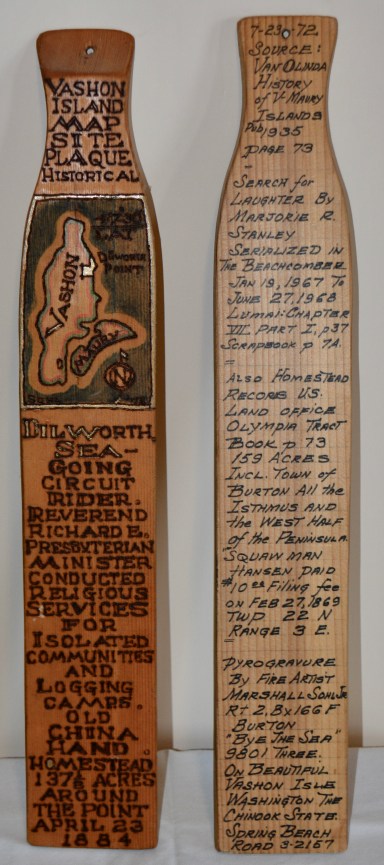 VASHON
ISLAND
MAP
SITE
PLAQUE
HISTORICAL
DILWORTH
POINT
VASHON
MAURY
N
DILWORTH,
SEA-
GOING
CIRCUIT
RIDER.
REVEREND
RICHARD E.
PRESBYTERIAN
MINISTER
CONDUCTED
RELIGIOUS
SERVICES
FOR
ISOLATED
COMMUNITIES
AND
LOGGING
CAMPS.
OLD
CHINA
HAND.
HOMESTEAD
137½ ACRES
AROUND
THE POINT
APRIL 23
1884
7-23-72.
SOURCE:
VAN OLINDA
HISTORY
of V-MAURY
ISLANDS
Pub 1935
PAGE 73
SEARCH for
LAUGHTER BY
MARJORIE R.
STANLEY
SERIALIZED IN
THE BEACHCOMBER
JAN 19, 1967 TO
JUNE 27, 1968
LUMAI: CHAPTER
VII PART I, p37
SCRAPBOOK p 7A.
=
ALSO HOMESTEAD
RECORD U.S.
LAND OFFICE
OLYMPIA TRACT
BOOK p 73
159 ACRES
INCL. TOWN of
BURTON ALL the
ISTHMUS AND
the WEST HALF
of the PENINSULA.
"SQUAW MAN"
HANSEN PAID
$10 Filing fee
ON FEB 27, 1869
TWP 22 N
RANGE 3 E.
=
PYROGRAVURE
BY FIRE ARTIST
MARSHALL SOHL JR
RT 2, BX 166 F
BURTON
"BYE THE SEA"
9801 THREE.
ON BEAUTIFUL
VASHON ISLE
WASHINGTON THE
CHINOOK STATE.
SPRING BEACH
ROAD 3-2167